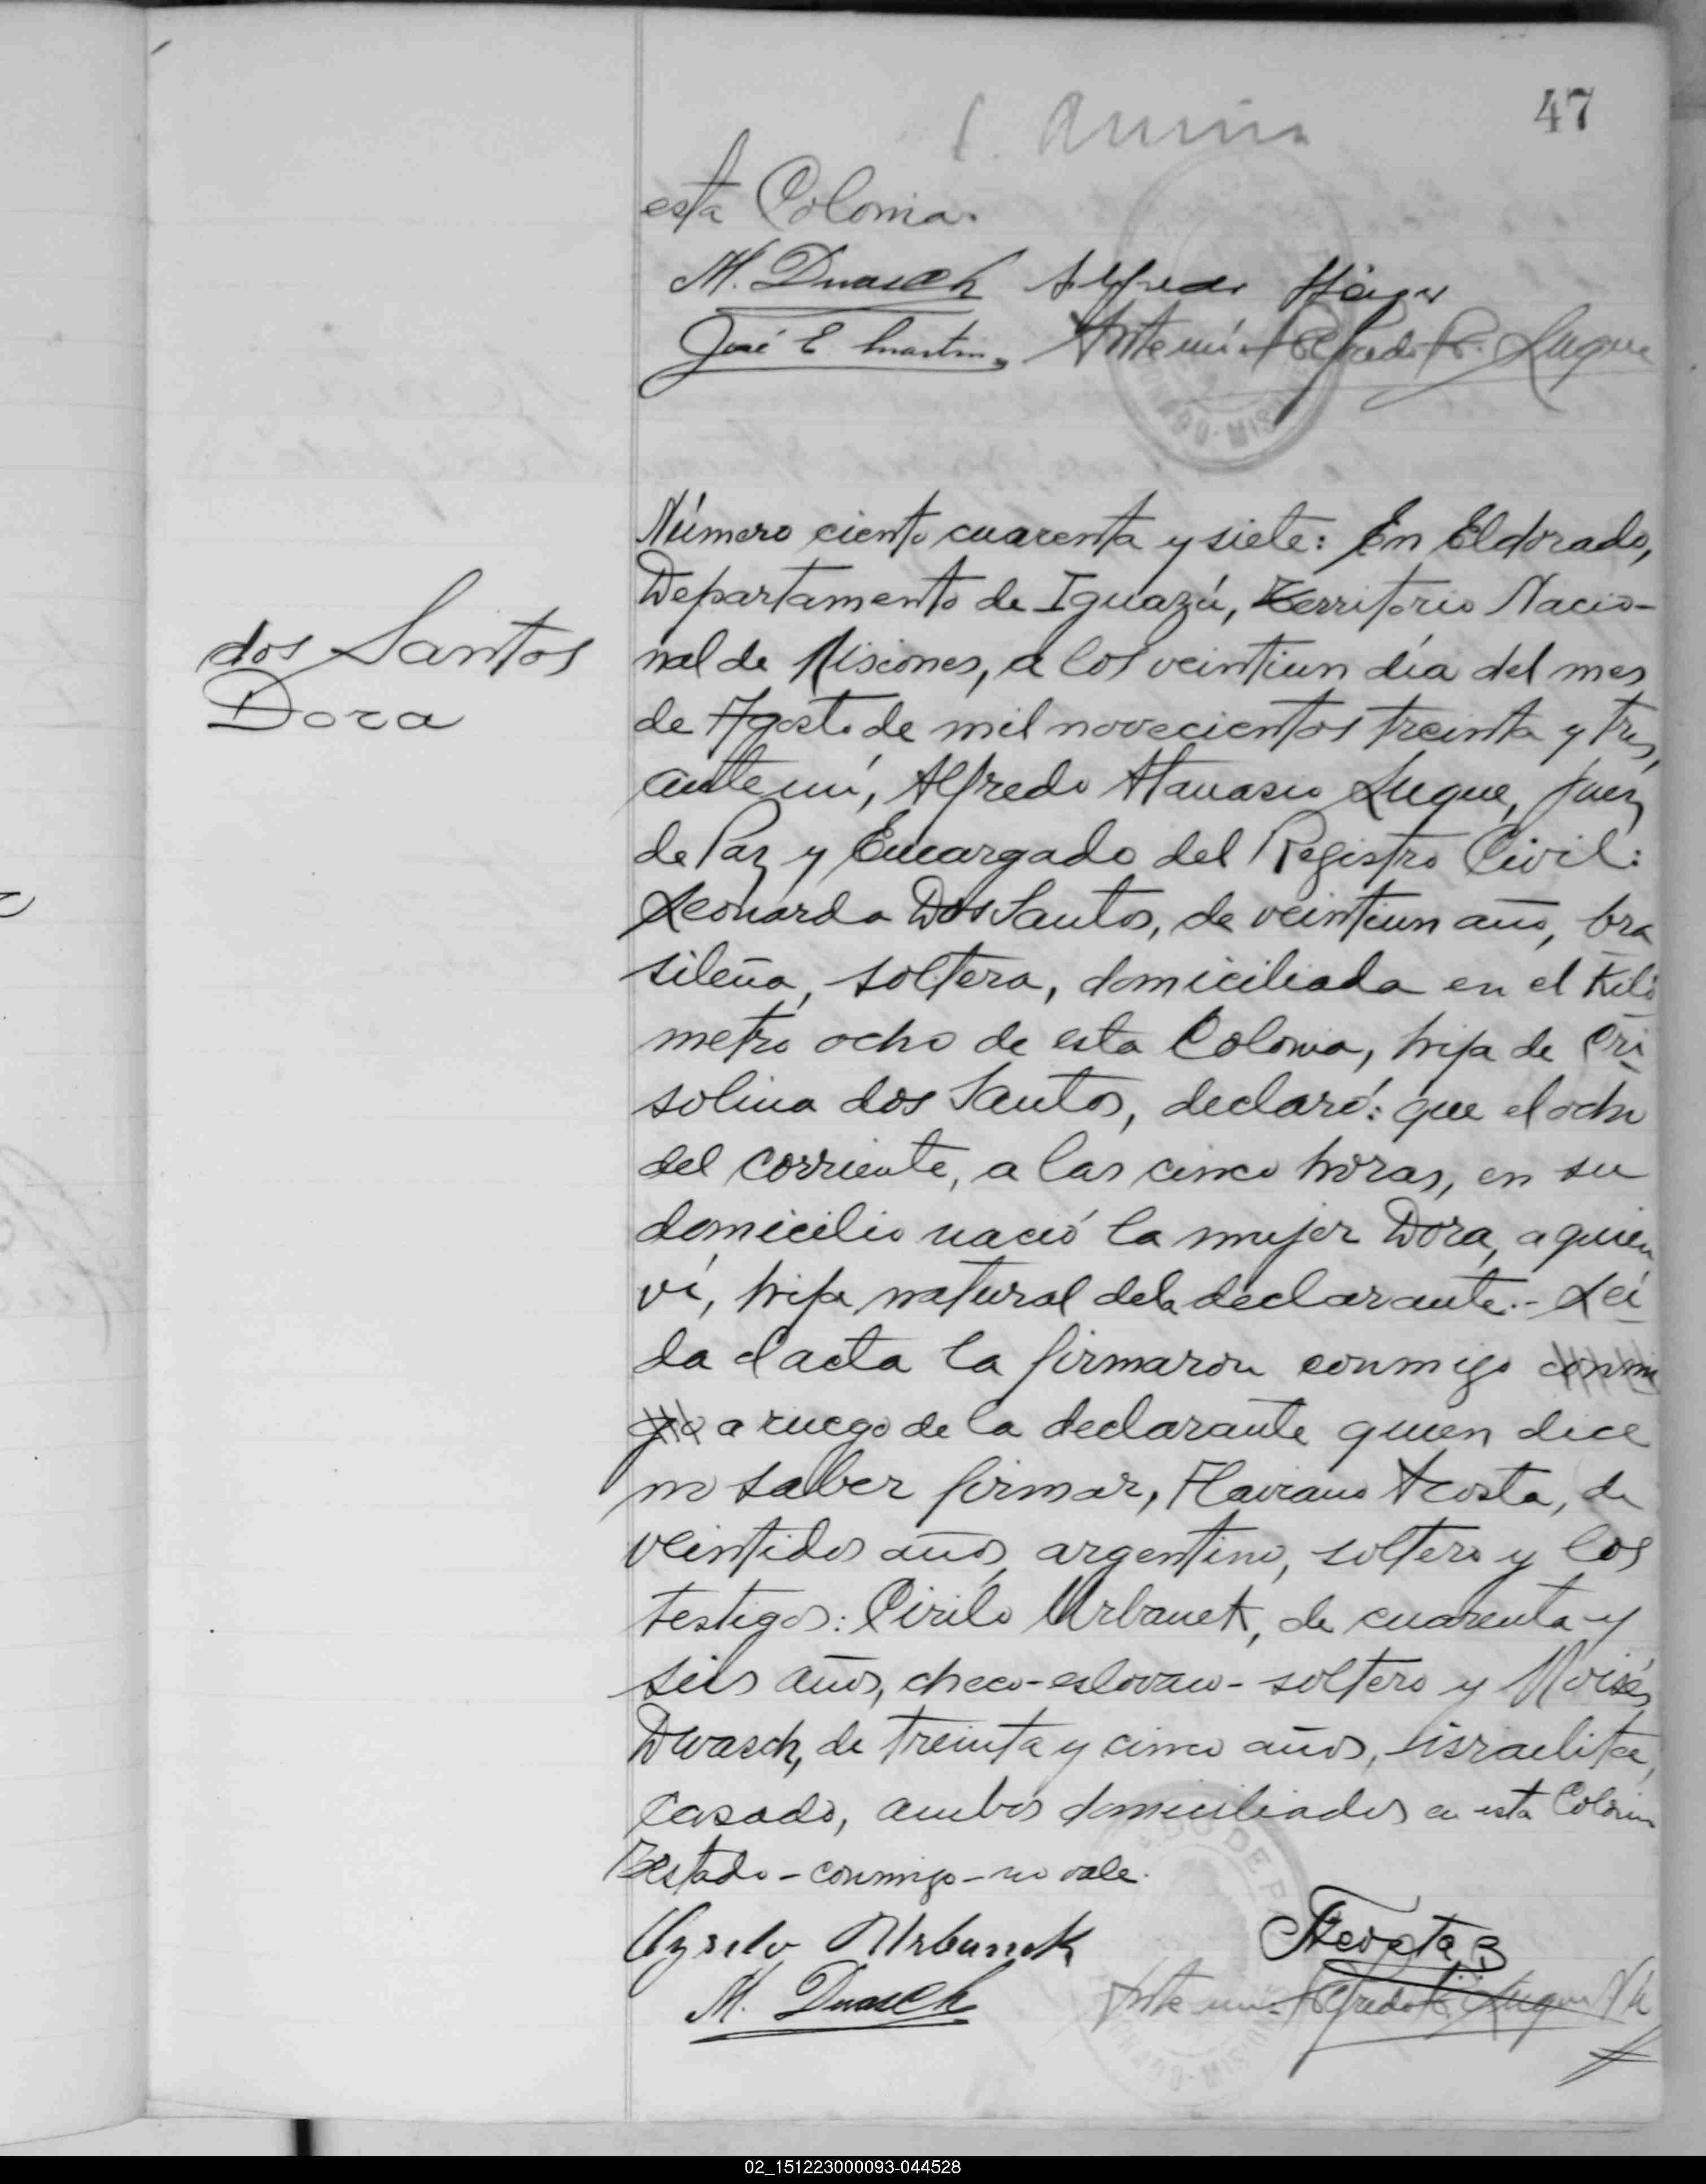 47
esta Colonia.
M. Dwasch Alfredo
José E. Martin Ante mí Alfredo A. Luque
Número ciento cuarenta y siete: En Eldorado,
Departamento de Iguazú, Territorio Nacio-
dos Santos
Dora
nal de Misiones, a los veintiun día del mes
de Agosto de mil novecientos treinta y tres,
ante mí, Alfredo Atanasio Luque, Juez
de Paz y Encargado del Registro Civil:
Leonarda Dos Santos, de veintiun año, bra
sileña, soltera, domiciliada en el Kiló
metro ocho de esta Colonia, hija de Cri
solina dos Santos, declaró: que el ocho
del corriente, a las cinco horas, en su
domicilio nació la mujer Dora, a quien
ví, hija natural dela declarante.- Leí
da el acta la firmaron conmigo conmi
go a ruego de la declarante quien dice
no saber firmar, Flaviano Acosta, de
veintidos años, argentino, soltero y los
testigos: Cirilo Urbanek, de cuarenta y
seis años, checo-eslovaco- soltero y Moisés
Dwasch, de treinta y cinco años, israelita,
casado, ambos domiciliados en esta Colonia
Testado - conmigo - no vale.
Cyrilo Urbanek FAcosta B
M. Dwasch Ante mí Alfredo A. Luque
DO DE P
ORADO-MISIO
02_151223000093-044528